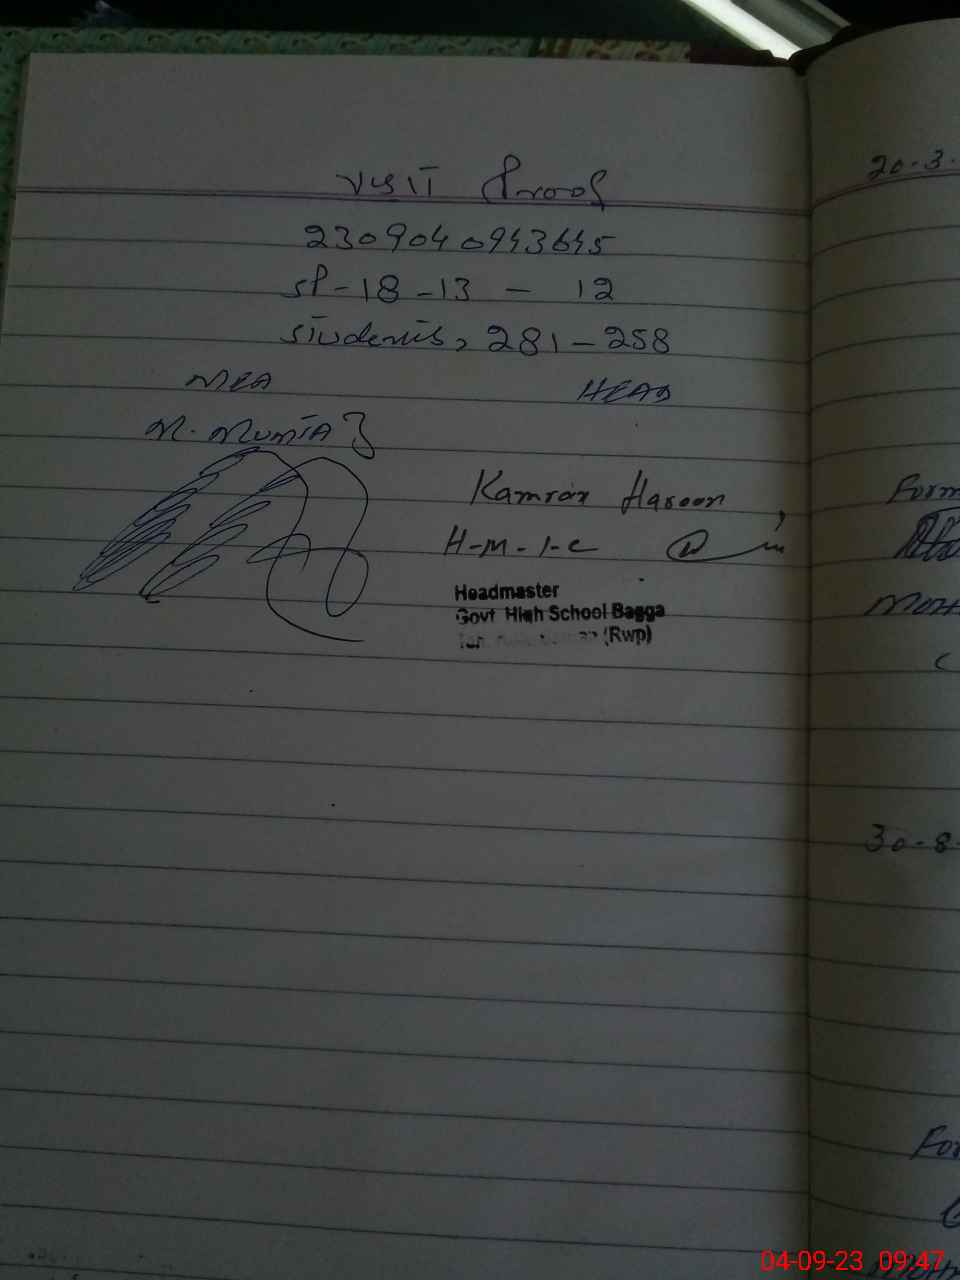 Visit Proof
2309040943645
SP-18-13 - 12
Students, 281-258
MEA
HEAD
M. Mumtaz
Kamran Haroon,
H-M-I-C
Headmaster
Govt High School Bagga
(Rwp)
20-3-
Form
30-8-
For
04-09-23 09:47